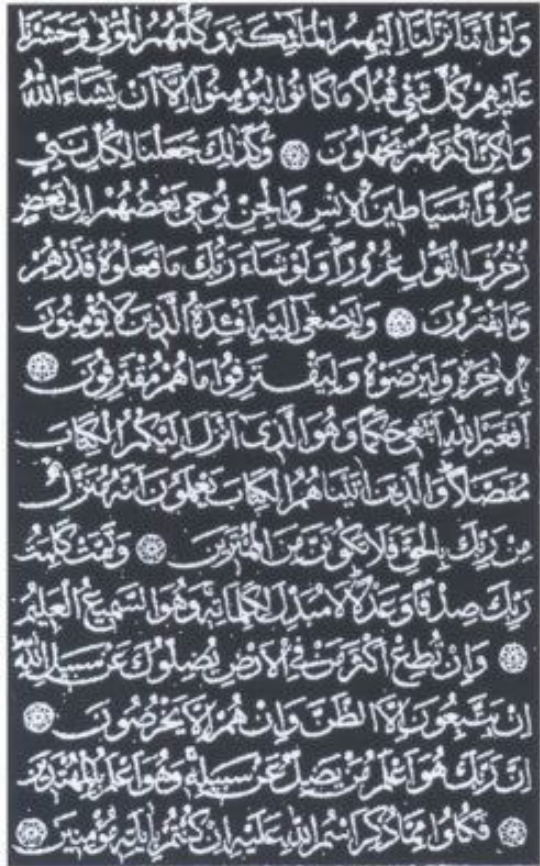 وَلَوْ اَنَّنَا نَزَّلْنَٓا اِلَيْهِمُ الْمَلٰٓئِكَةَ وَكَلَّمَهُمُ الْمَوْتٰى وَحَشَرْنَا
عَلَيْهِمْ كُلَّ شَيْءٍ قُبُلًا مَا كَانُوا لِيُؤْمِنُٓوا اِلَّٓا اَنْ يَشَٓاءَ اللّٰهُ
وَلٰكِنَّ اَكْثَرَهُمْ يَجْهَلُونَ وَكَذٰلِكَ جَعَلْنَا لِكُلِّ نَبِيٍّ
عَدُوًّا شَيَاطِينَ الْاِنْسِ وَالْجِنِّ يُوحِي بَعْضُهُمْ اِلٰى بَعْضٍ
زُخْرُفَ الْقَوْلِ غُرُورًا وَلَوْ شَٓاءَ رَبُّكَ مَا فَعَلُوهُ فَذَرْهُمْ
وَمَا يَفْتَرُونَ وَلِتَصْغٰٓى اِلَيْهِ اَفْـِٔدَةُ الَّذِينَ لَا يُؤْمِنُونَ
بِالْاٰخِرَةِ وَلِيَرْضَوْهُ وَلِيَقْتَرِفُوا مَا هُمْ مُقْتَرِفُونَ
اَفَغَيْرَ اللّٰهِ اَبْتَغِي حَكَمًا وَهُوَ الَّذِٓي اَنْزَلَ اِلَيْكُمُ الْكِتَابَ
مُفَصَّلًا وَالَّذِينَ اٰتَيْنَاهُمُ الْكِتَابَ يَعْلَمُونَ اَنَّهُ مُنَزَّلٌ
مِنْ رَبِّكَ بِالْحَقِّ فَلَا تَكُونَنَّ مِنَ الْمُمْتَرِينَ وَتَمَّتْ كَلِمَتُ
رَبِّكَ صِدْقًا وَعَدْلًا لَا مُبَدِّلَ لِكَلِمَاتِهِ وَهُوَ السَّمِيعُ الْعَلِيمُ
وَاِنْ تُطِعْ اَكْثَرَ مَنْ فِي الْاَرْضِ يُضِلُّوكَ عَنْ سَبِيلِ اللّٰهِ
اِنْ يَتَّبِعُونَ اِلَّا الظَّنَّ وَاِنْ هُمْ اِلَّا يَخْرُصُونَ
اِنَّ رَبَّكَ هُوَ اَعْلَمُ مَنْ يَضِلُّ عَنْ سَبِيلِهِ وَهُوَ اَعْلَمُ بِالْمُهْتَدِينَ
فَكُلُوا مِمَّا ذُكِرَ اسْمُ اللّٰهِ عَلَيْهِ اِنْ كُنْتُمْ بِاٰيَاتِهِ مُؤْمِنِينَ